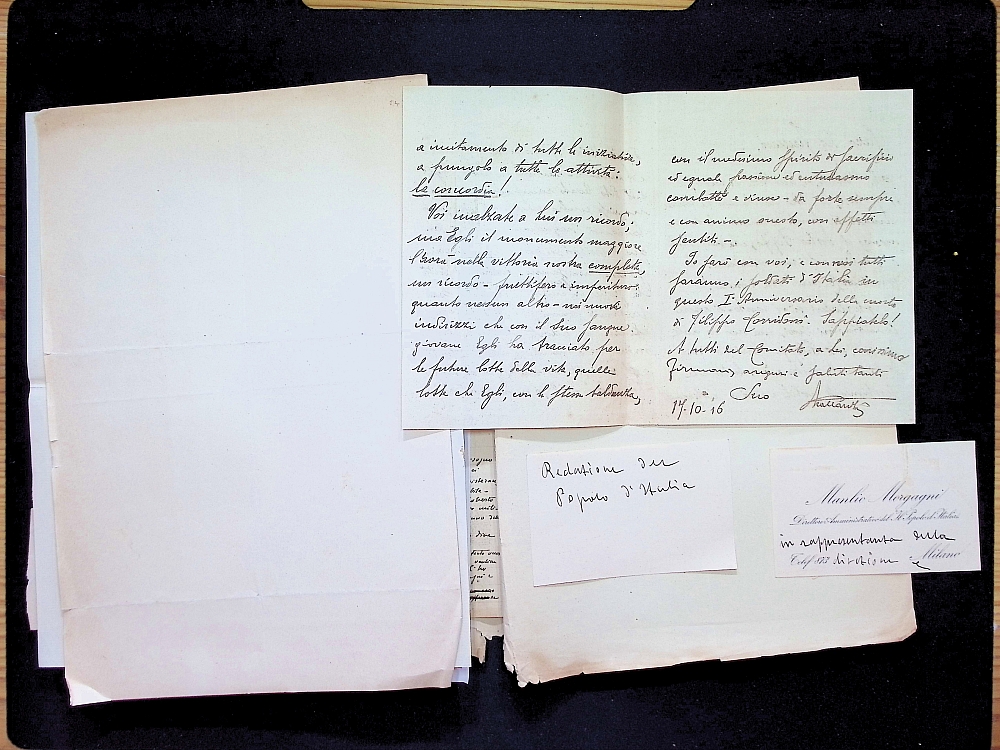 a incitamento di tutte le iniziative,
a pungolo a tutte le attività:
la concordia!
Voi inalzate a lui un ricordo,
ma Egli il monumento maggiore
l'avrà nella vittoria nostra completa,
un ricordo - fruttifero e imperituro
quanto nessun altro - nei nuovi
indirizzi che con il Suo sangue
giovane Egli ha tracciato per
le future lotte della vita, quelle
lotte che Egli, con la stessa baldanza,
con il medesimo spirito di sacrificio
ed eguale passione ed entusiasmo
combatté e vinse - da forte sempre
e con animo onesto, con affetti
sentiti -.
Io sarò con voi, e con voi tutti
saranno i soldati d'Italia in
questo I° Anniversario della morte
di Filippo Corridoni. Sappiatelo!
A tutti del Comitato, a lei, carissimo
auguri e saluti tanti
Suo
17-10-16
Redazione del
Popolo d'Italia
Manlio Morgagni
Direttore Amministrativo del "Il Popolo d'Italia"
in rappresentanza della
direzione
Milano